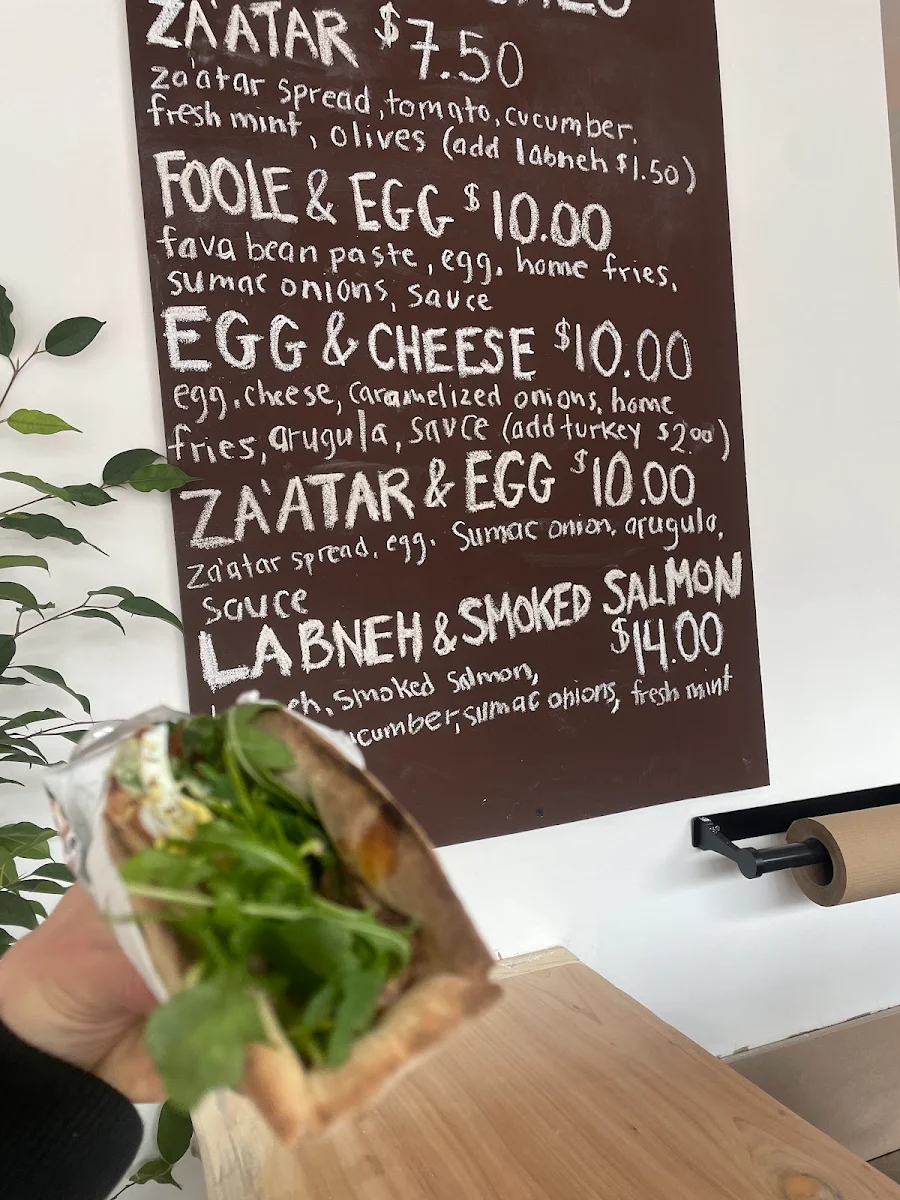 ZA'ATAR $7.50
za'atar spread, tomato, cucumber,
fresh mint, olives (add labneh $1.50)
FOOLE & EGG $10.00
fava bean paste, egg, home fries,
sumac onions, sauce
EGG & CHEESE $10.00
egg, cheese, caramelized onions, home
fries, arugula, sauce (add turkey $2.00)
ZA'ATAR & EGG $10.00
za'atar spread, egg, sumac onion, arugula,
sauce
LABNEH & SMOKED SALMON
$14.00
smoked salmon,
sumac onions, fresh mint